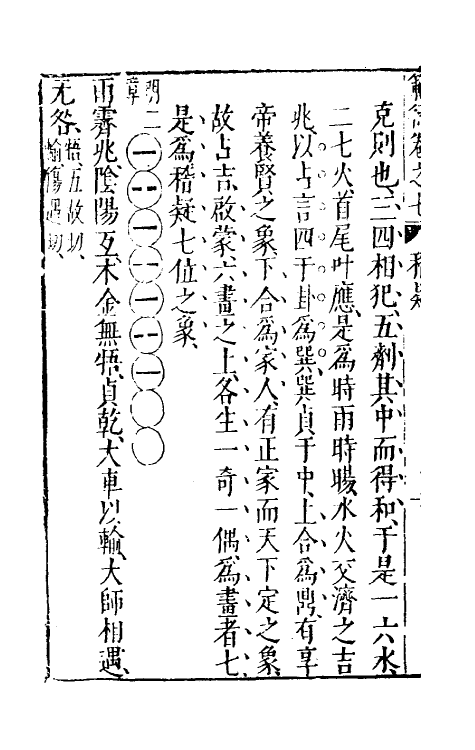 克則也、三四相犯、五劑其中而得和、于是一六水、
二七火、首尾叶應、是爲時雨時暘、水火交濟之吉
兆、以占言四于卦爲巽、巽貞于中、上合爲鼎、有享
帝養賢之象、下合爲家人、有正家而天下定之象、
故占吉、啟蒙、六畫之上、各生一奇一偶、爲畫者七、
是爲稽疑七位之象、
明二章
雨霽兆陰陽互、木金無悟、貞乾、大車以輸、大師相遇、
无咎、悟五故切、輸傷遇切、